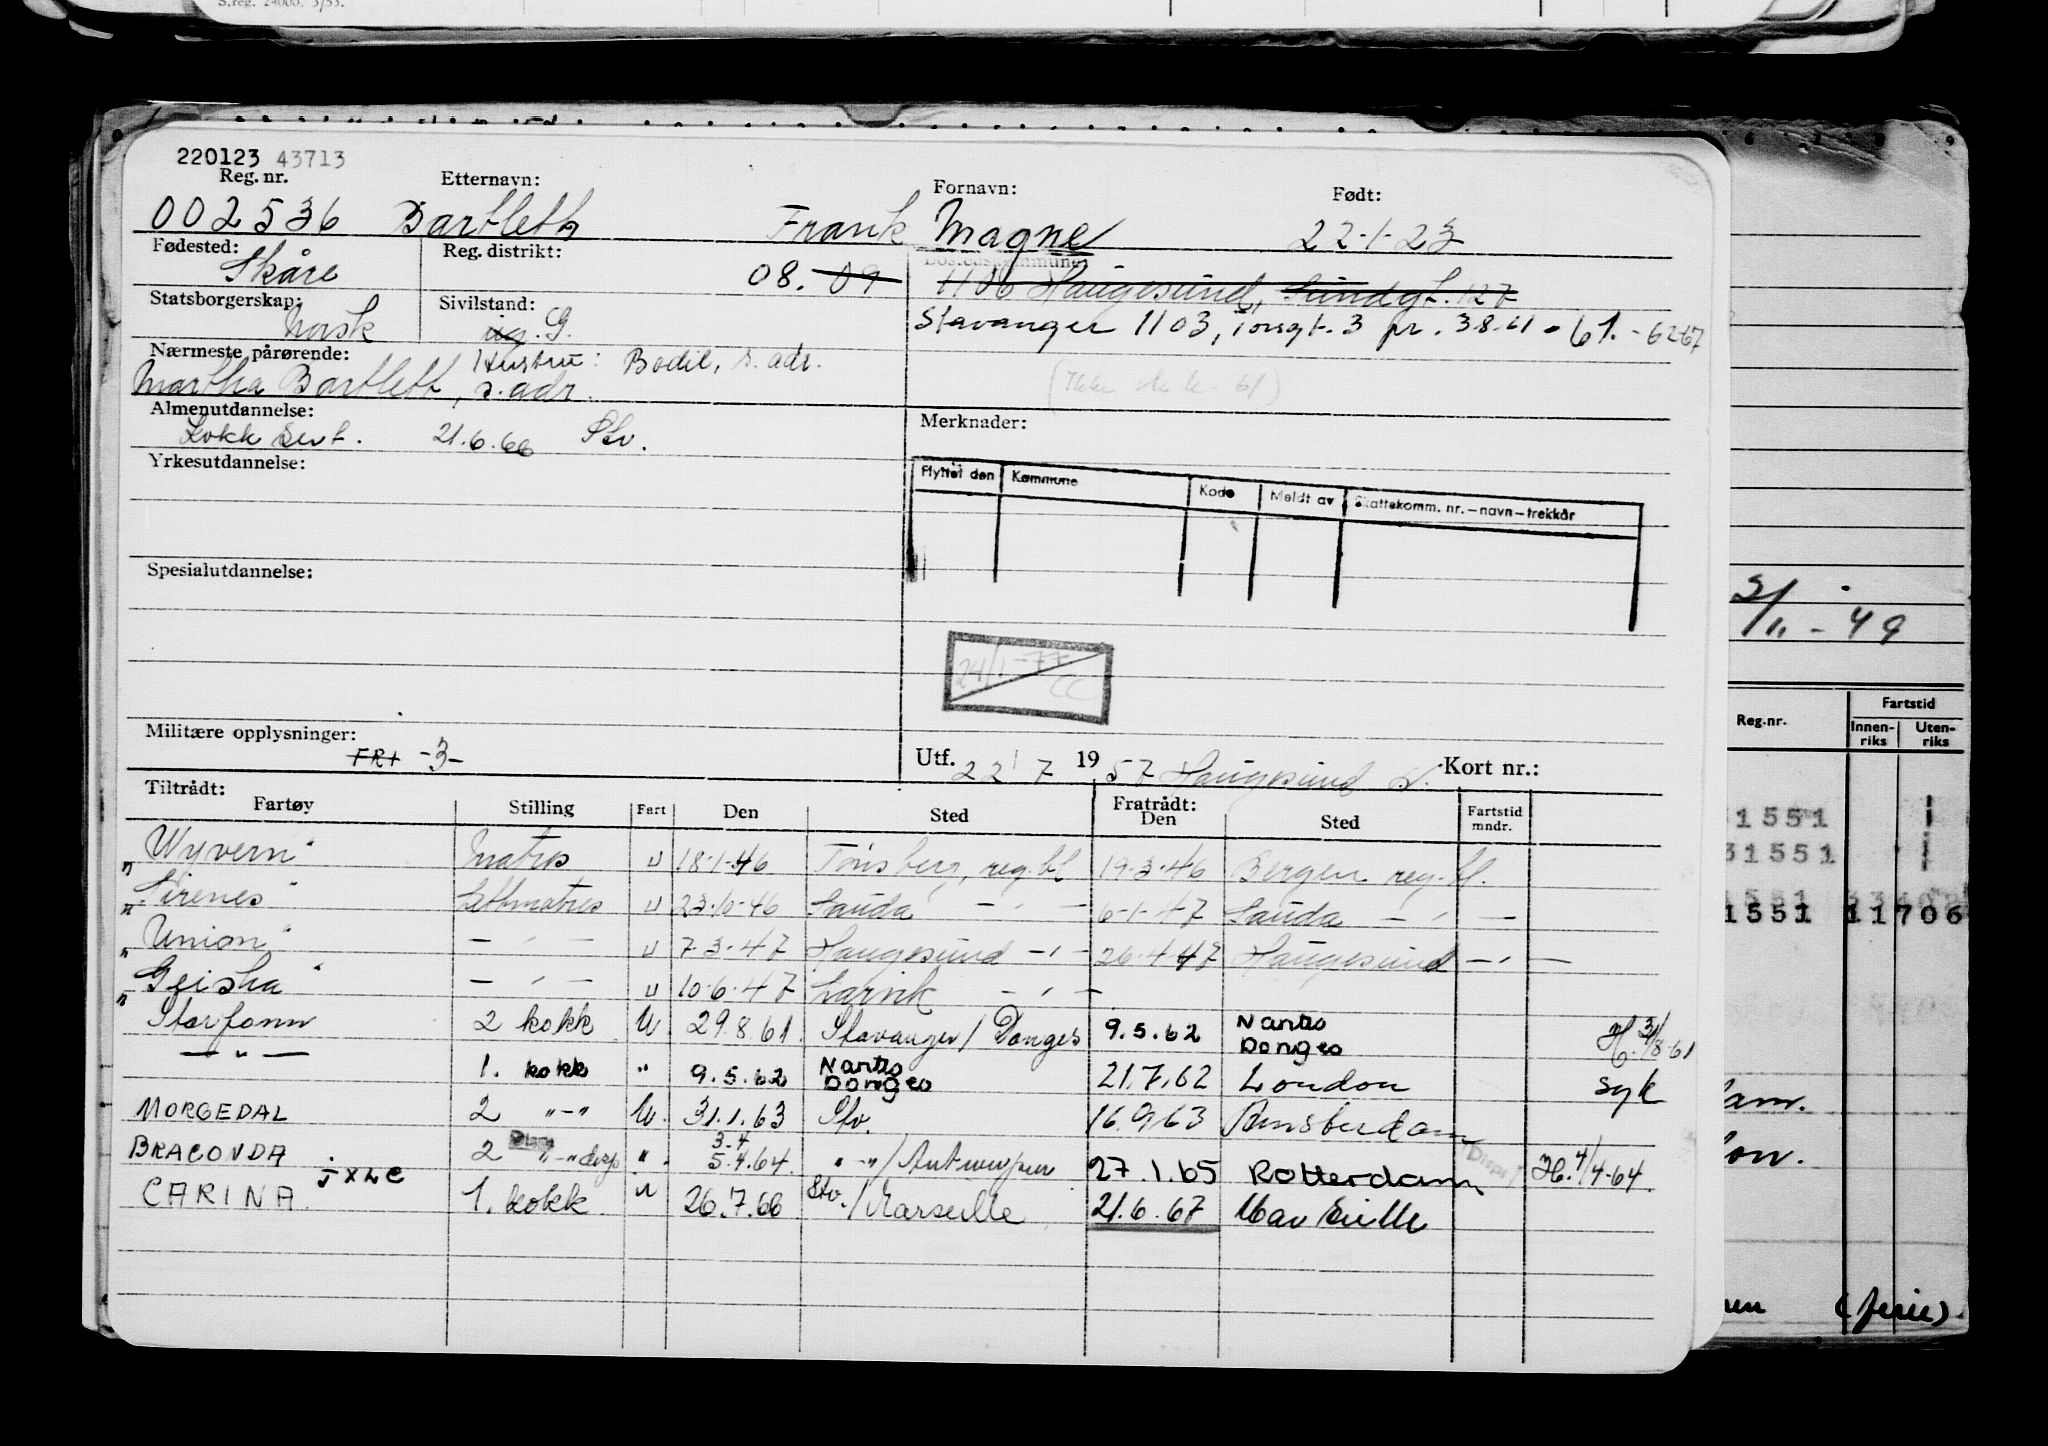 S.reg. 24000. 3/53.
220123 43713
Reg. nr. Etternavn: Fornavn: Født:
002536 Bartlett Frank Magne 22-1-23
Fødested: Reg. distrikt: Bostedskommune:
Skåre 08. 09 1106 Haugesund, Sundgt. 127
Statsborgerskap: Sivilstand:
Norsk ug. G. Stavanger 1103, Torsgt. 3 pr. 3.8.61 - 61. - 62-67
Nærmeste pårørende: Hustru: Bodil, s. adr.
Martha Bartlett, s. adr.
Almenutdannelse: Merknader:
Kokk sert. 21.6.66 Stv.
Yrkesutdannelse:
Flyttet den Kommune Kode Meldt av Skattekomm. nr.-navn-trekkår
Spesialutdannelse:
24/1-77 CC
3/11-49
Militære opplysninger:
FRI -3-
Utf. 22/7 1957 Haugesund Kort nr.:
Tiltrådt: Fratrådt:
Fartøy Stilling Fart Den Sted Den Sted Fartstid mndr.
"Wyvern" Matros U 18-1-46 Tønsberg, reg.bl 19-3-46 Bergen reg.bl.
"Sirenes" Lettmatros U 23-10-46 Sauda - " - 6-1-47 Sauda - " -
"Union" - " - U 7-3-47 Haugesund - " - 26-4-47 Haugesund - " -
"Geisha" - " - U 10-6-47 Larvik - " -
Storfonn 2 kokk U. 29.8.61. Stavanger/Donges 9.5.62 Nantes Donges H. 31/8-61
- " - 1. kokk " 9.5.62 Nantes Donges 21.7.62 London syk
MORGEDAL 2 "-" U. 31.1.63 Stv. 16.9.63 Amsterdam
BRACONDA 2 "-" disp ". 3.4 5.4.64. "-"/Antwerpen 27.1.65 Rotterdam Disp. H. 4/4-64.
JXLC
CARINA 1. kokk " 26.7.66 Stv./Marseille 21.6.67 Marseille
Reg.nr. Fartstid
Innen-riks Uten-riks
31551
31551
1551 11706
am.
on.
(ferie)